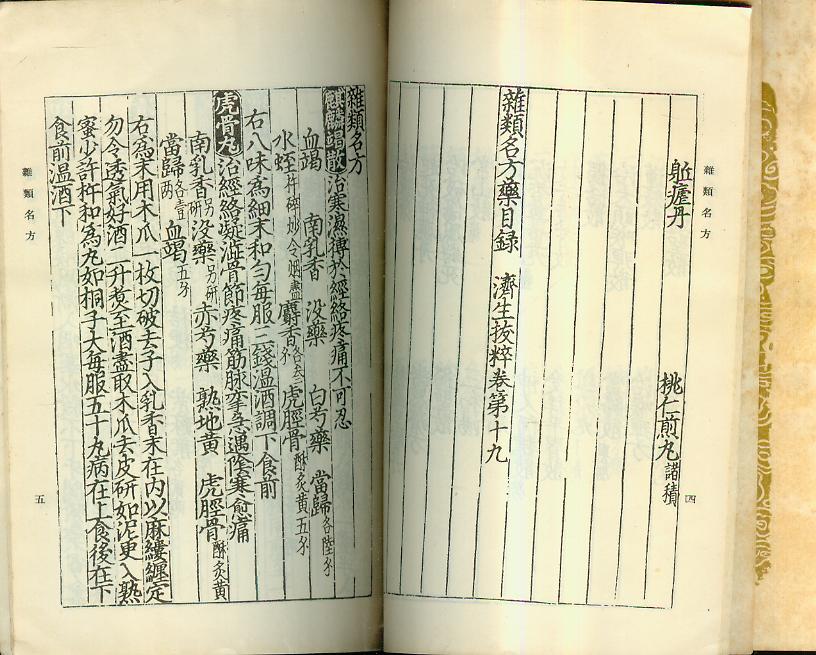 雜類名方
𦙶瘧丹
桃仁煎丸 諸積
雜類名方藥目録 濟生抜粹卷第十九
四
雜類名方
麒麟竭散 治寒濕搏於經絡疼痛不可忍
血竭 南乳香 没藥 白芍藥 當歸 各陸分
水蛭 杵碎炒令烟盡 麝香 各叁分 虎脛骨 酥炙黄五分
右八味為細末和勻每服三錢温酒調下食前
虎骨丸 治經絡凝澁骨節疼痛筋脉攣急遇陰寒愈痛
南乳香 另研 没藥 另研 赤芍藥 熟地黄 虎脛骨 酥炙黄
當歸 各壹兩 血竭 五分
右為末用木瓜一枚切破去子入乳香末在内以麻縷纒定
勿令透氣好酒二升煮至酒盡取木瓜去皮研如泥更入熟
蜜少許杵和為丸如桐子大每服五十丸病在上食後在下
食前温酒下
雜類名方
五